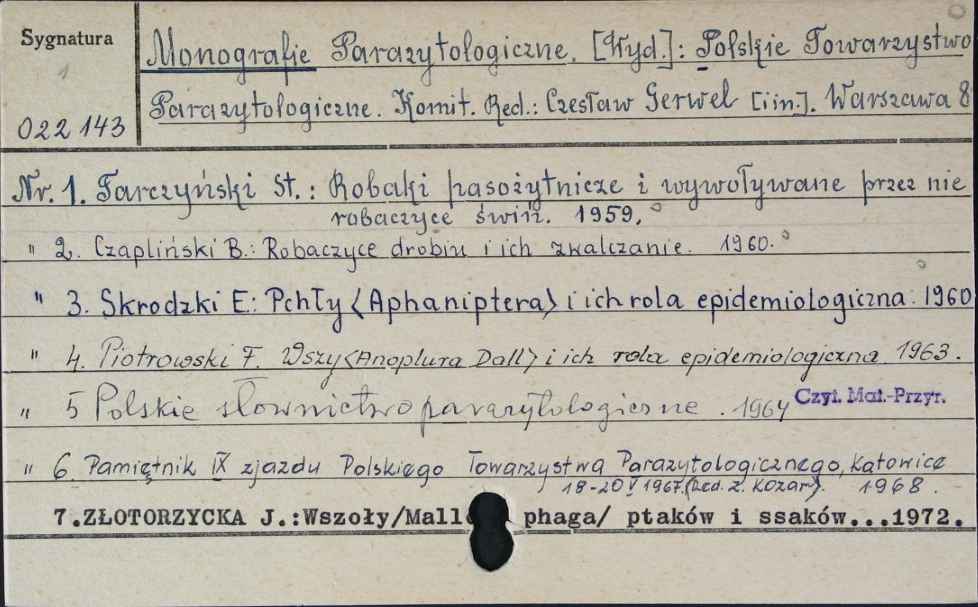 Sygnatura
1
022 143
Monografie Parazytologiczne. [Wyd.]: Polskie Towarzystwo
Parazytologiczne. Komit. Red.: Czesław Gerwel [i in.]. Warszawa 8
Nr. 1. Tarczyński St.: Robaki pasożytnicze i wywoływane przez nie
robaczyce świń. 1959.
" 2. Czapliński B.: Robaczyce drobiu i ich zwalczanie. 1960.
" 3. Skrodzki E.: Pchły <Aphaniptera> i ich rola epidemiologiczna. 1960
" 4. Piotrowski F. Wszy <Anoplura Dall> i ich rola epidemiologiczna 1963.
" 5 Polskie słownictwo parazytologiczne. 1964 Czyt. Mat.-Przyr.
" 6. Pamiętnik IX zjazdu Polskiego Towarzystwa Parazytologicznego, Katowice
18-20 V 1967. (Red. Z. Kozar). 1968.
7.ZŁOTORZYCKA J.:Wszoły/Mallo phaga/ ptaków i ssaków...1972.